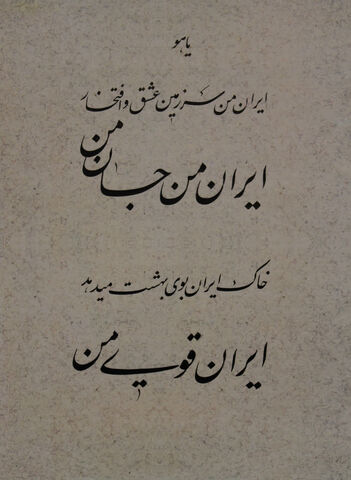 یاهو
ایران من سرزمین عشق و افتخار
ایران من جان من
خاک ایران بوی بهشت میدهد
ایران قوی من